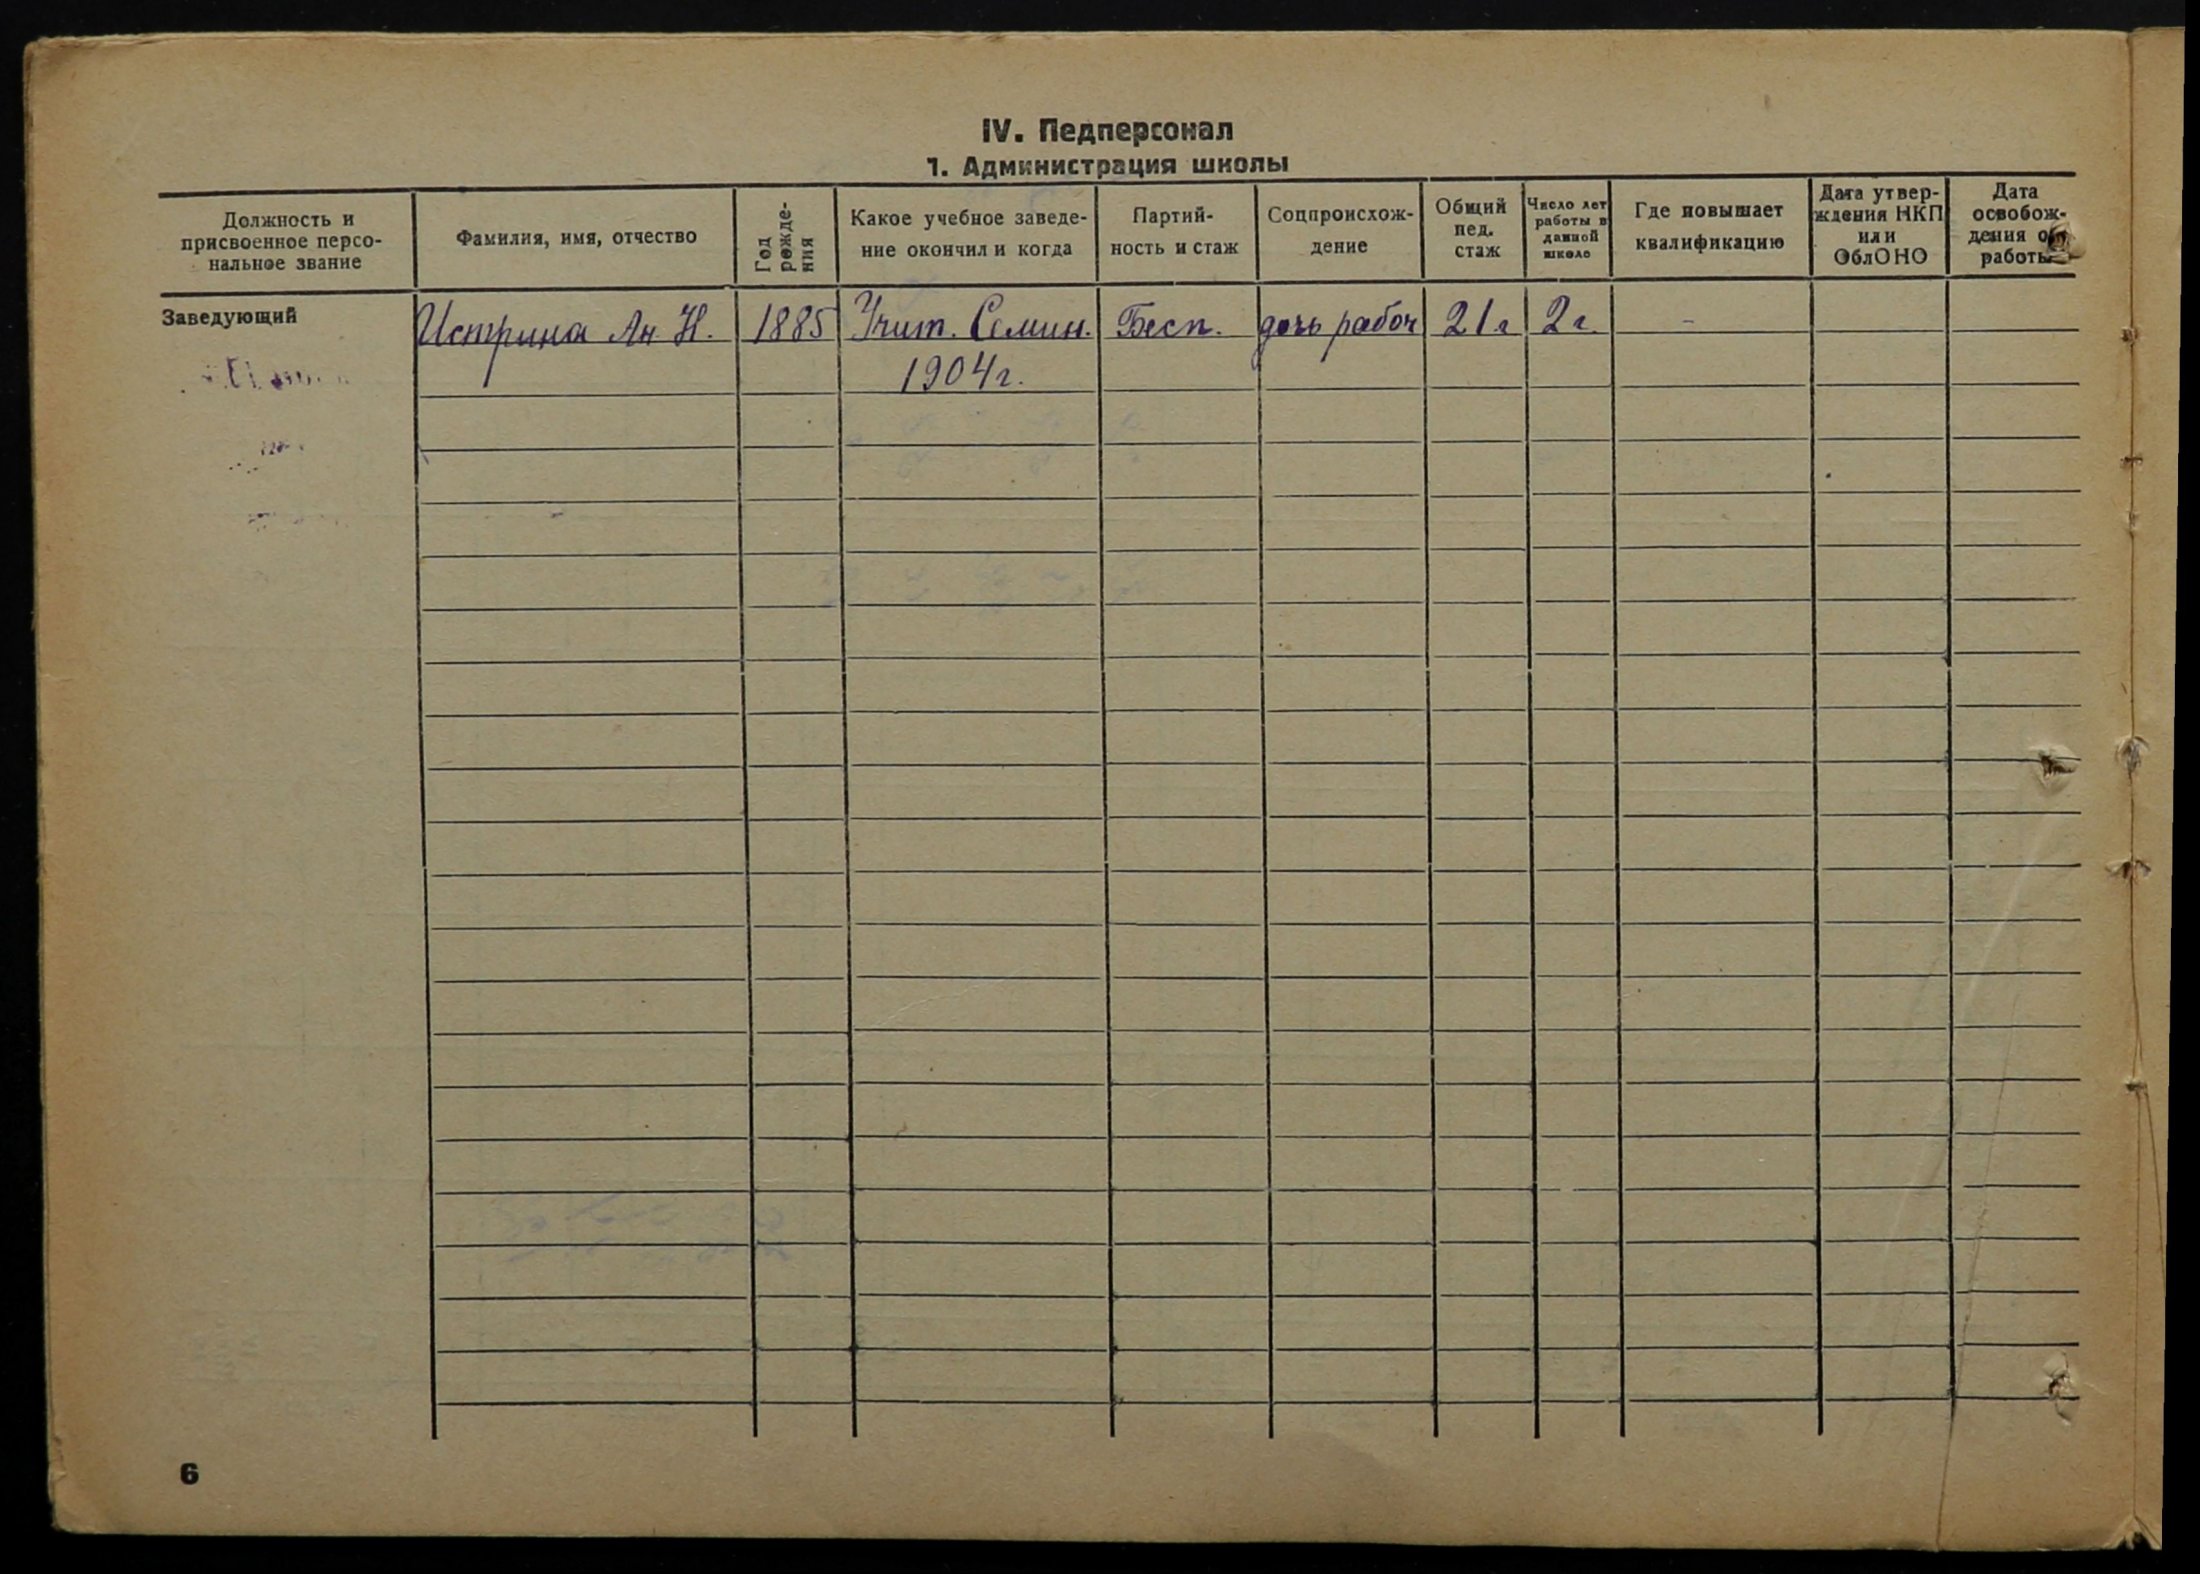 IV. Педперсонал
1. Администрация школы
Должность и
присвоенное персо-
нальное звание
Фамилия, имя, отчество
Год
рожде-
ния
Какое учебное заведе-
ние окончил и когда
Партий-
ность и стаж
Соцпроисхож-
дение
Общий
пед.
стаж
Число лет
работы в
данной
школе
Где повышает
квалификацию
Дата утвер-
ждения НКП
или
ОблОНО
Дата
освобож-
дения от
работы
Заведующий
Истрина Ан Н.
1885
Учит. Семин.
1904 г.
Бесп.
дочь рабоч
21 г
2 г.
-
6